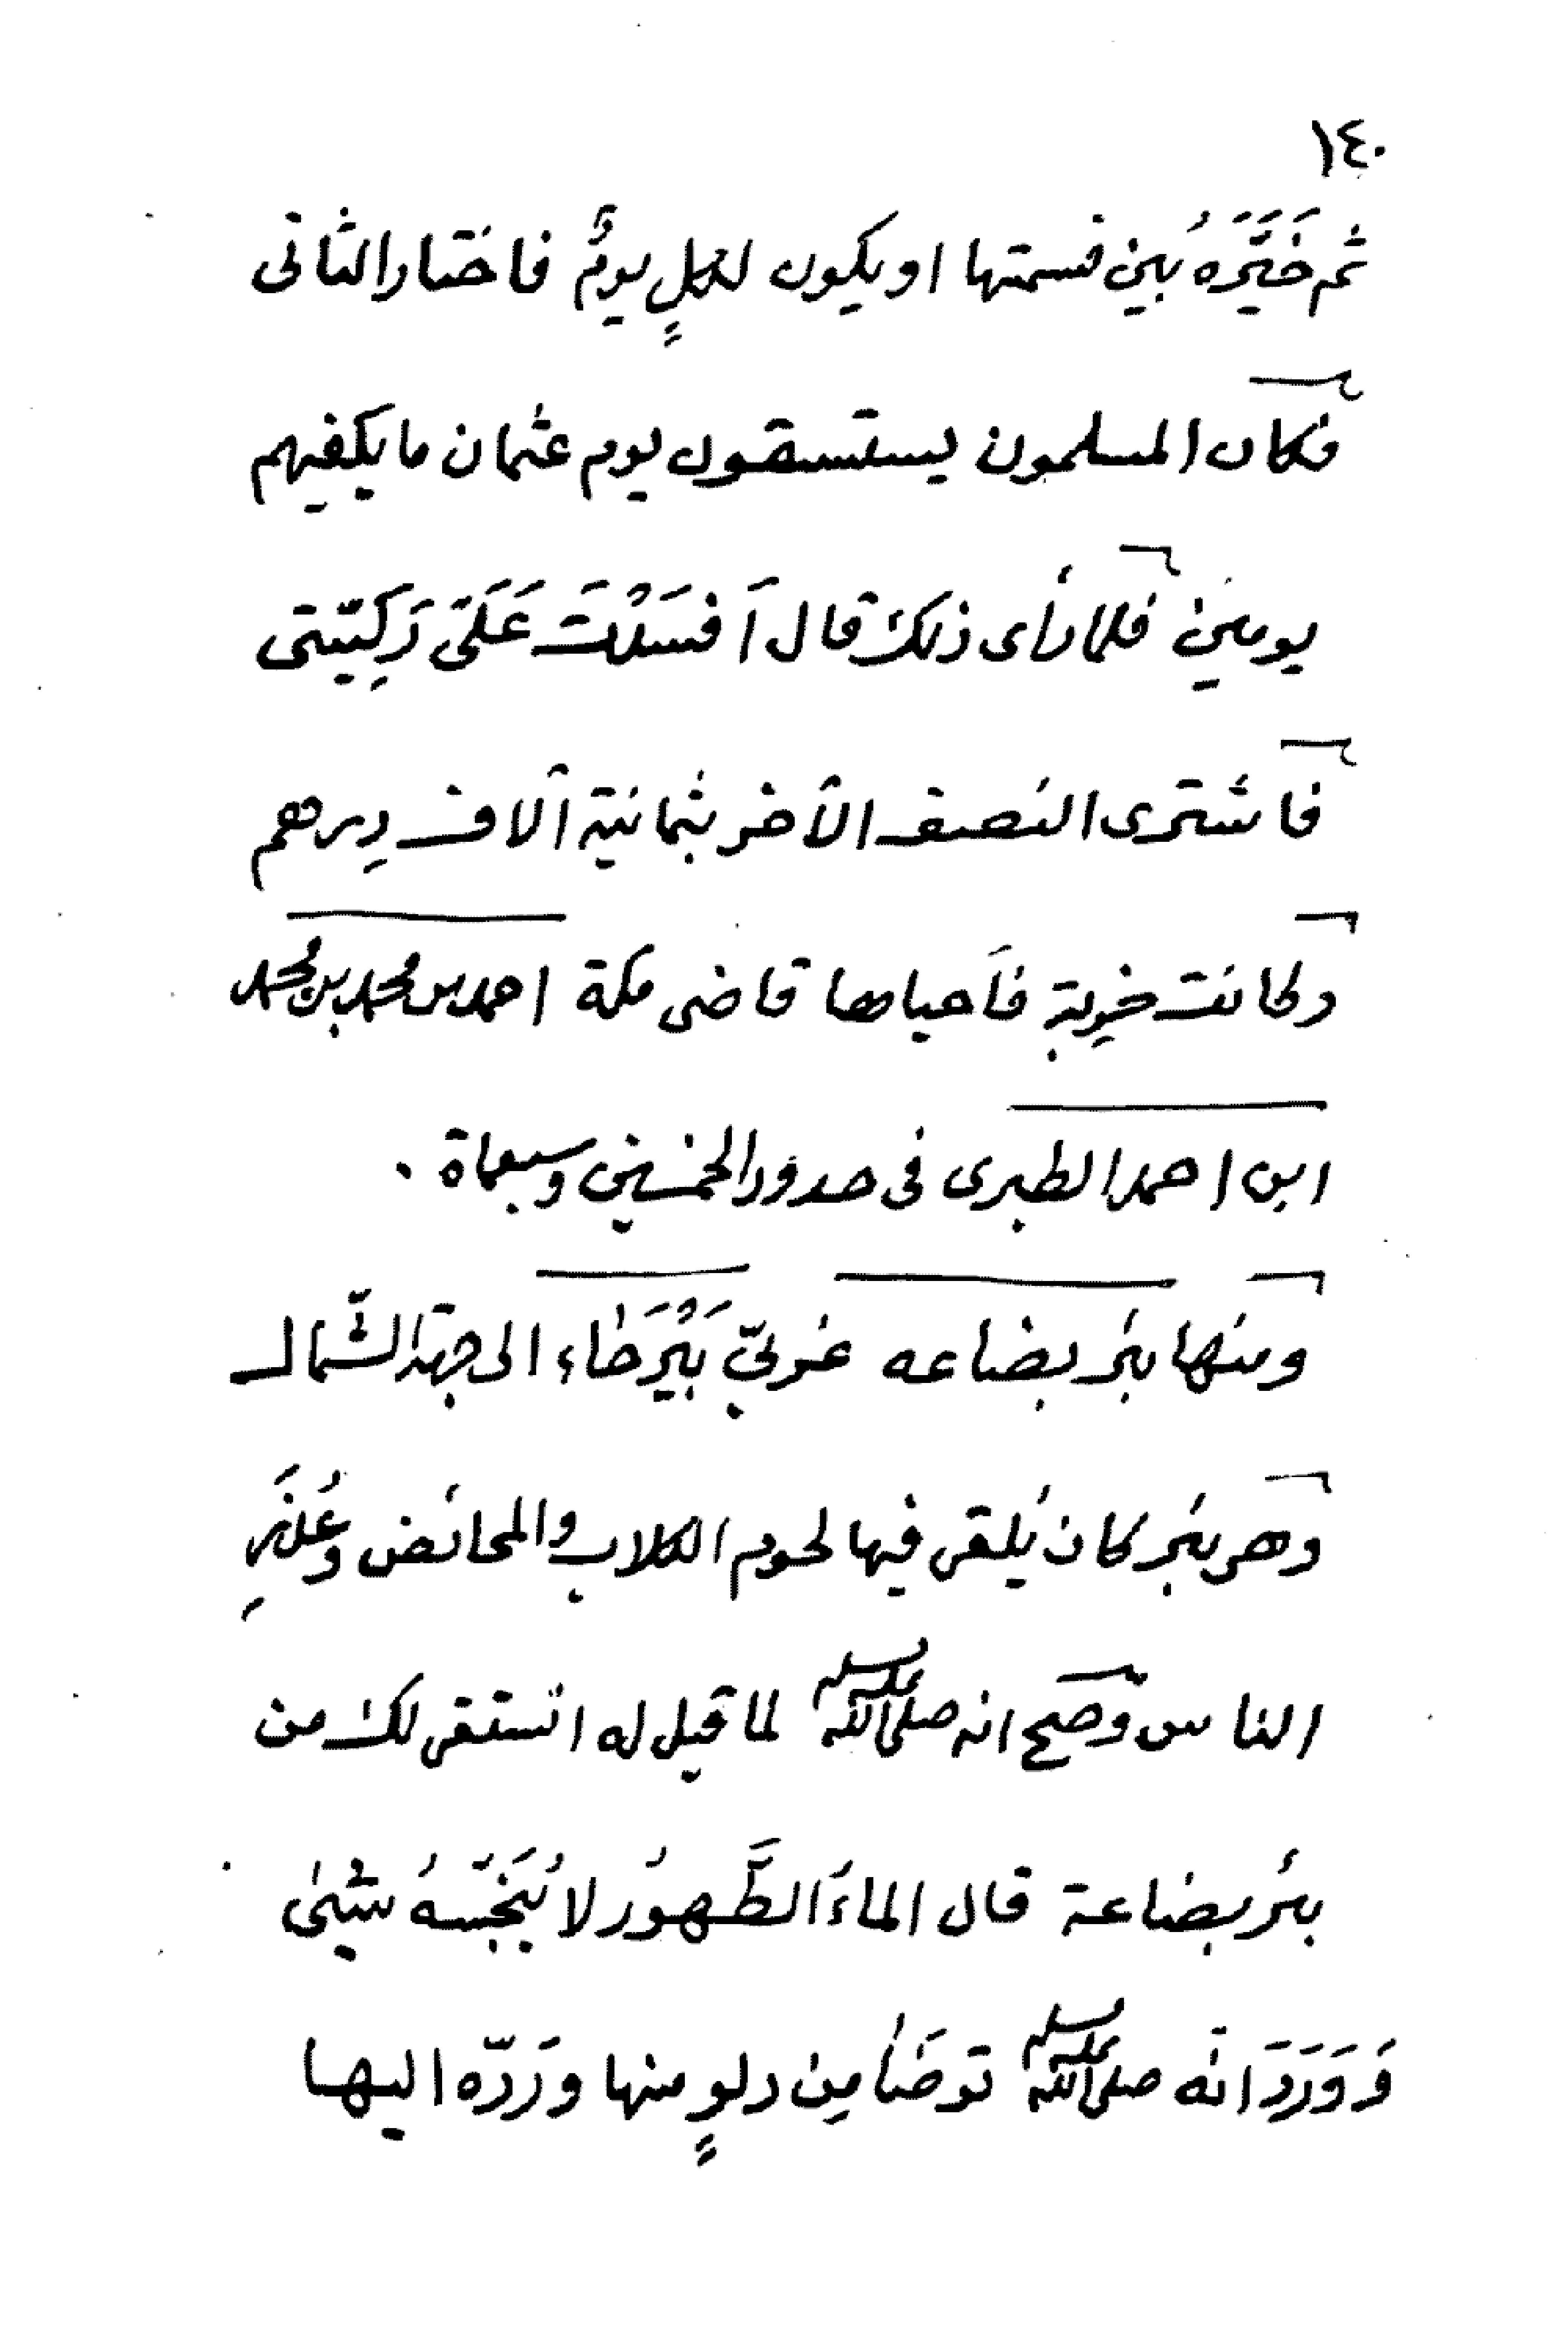 ١٤٠
ثم خَيَّرَهُ بين قسمتها او يكون لكلٍ يومٌ فاختار الثانى
فكان المسلمون يستسقون يوم عثمان ما يكفيهم
يومين فلما رأى ذلك قال اَفسَدْتَ عَلَىَّ رَكِيّتى
فاشترى النصف الآخر بثمانية آلاف دِرهم
وكانت خربة فاَحياها قاضى مكة احمد بن محمد بن محمد
ابن احمد الطبرى فى حدود الخمسين وسبعماة .
ومنها بئر بضاعه غربيّ بَيْرَحَاء الى جهة الشّمال
وهى بئر كان يُلقى فيها لحوم الكلاب والمحائض وعُذَرِ
الناس وصَحّ انه صلى الله عليه وسلم لما قيل له انستقى لك من
بئر بضاعة قال الماءُ الطَّهوُر لا يُنَجّسهُ شيئ
وَوَرَدَ انّه صلى الله عليه وسلم توضأ مِن دلوٍ منها ورَدّه اليها